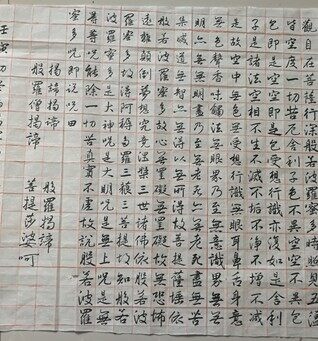 觀自在菩薩行深般若波羅蜜多時照見五蘊
皆空度一切苦厄舍利子色不異空空不異色
色即是空空即是色受想行識亦復如是舍利
子是諸法空相不生不滅不垢不淨不增不減
是故空中無色無受想行識無眼耳鼻舌身意
無色聲香味觸法無眼界乃至無意識界無無
明亦無無明盡乃至無老死亦無老死盡無苦
集滅道無智亦無得以無所得故菩提薩埵依
般若波羅蜜多故心無罣礙無罣礙故無有恐怖
遠離顛倒夢想究竟涅槃三世諸佛依般若
波羅蜜多故得阿耨多羅三藐三菩提故知般若
波羅蜜多是大神咒是大明咒是無上咒是無
等等咒能除一切苦真實不虛故說般若波羅
蜜多咒即說咒曰
揭諦揭諦 般羅揭諦
般羅僧揭諦 菩提莎婆呵
壬寅